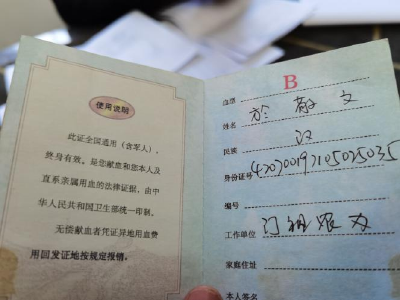 使用说明
此证全国通用（含军人），
终身有效。是您献血和您本人及
直系亲属用血的法律证据，由中
华人民共和国卫生部统一印制。
无偿献血者凭证异地用血费
用回发证地按规定报销。
血型 B
姓名 於 文
民族 汉
身份证号
编号
工作单位
家庭住址
本人签名